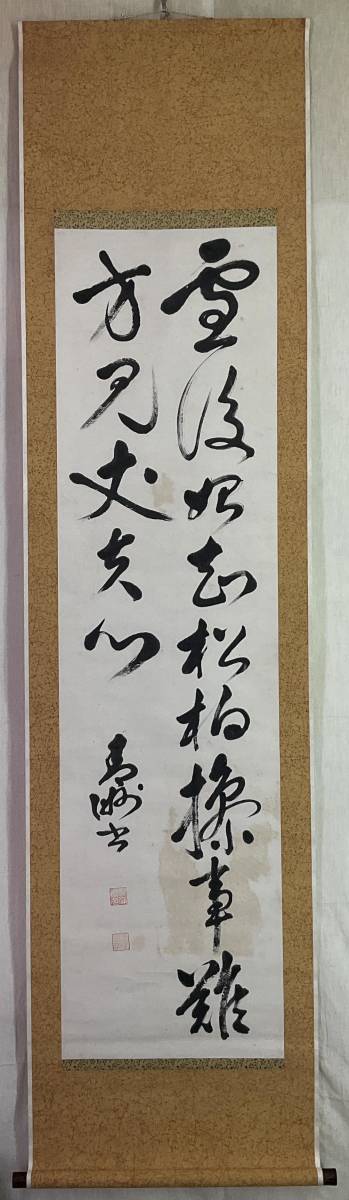 雪後始知松柏操事難
方見丈夫心
書